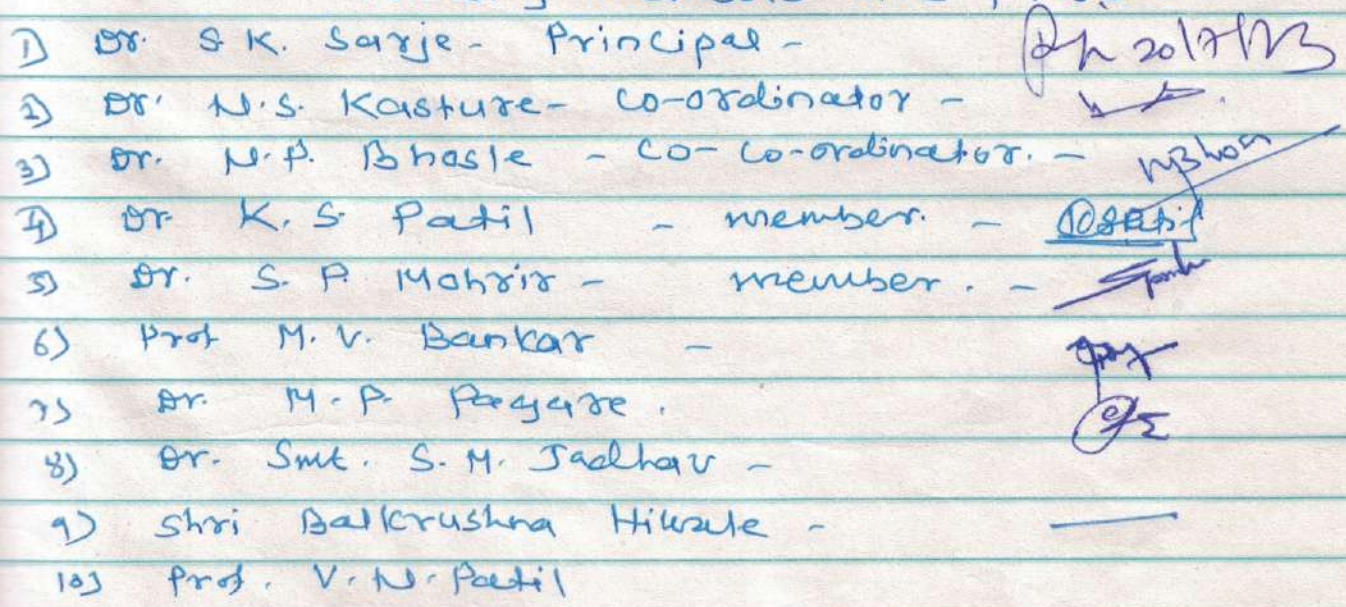 1) Dr. S.K. Sarje - Principal - 20/7/23
2) Dr. N.S. Kasture - Co-ordinator -
3) Dr. N.P. Bhosle - Co-Co-ordinator. -
4) Dr. K.S. Patil - member. -
5) Dr. S.P. Mohrir - member. -
6) Prof M.V. Bankar -
7) Dr. M.P. Pagare.
8) Dr. Smt. S.M. Jadhav -
9) Shri Balkrushna Hiwale -
10) Prof. V.N. Patil